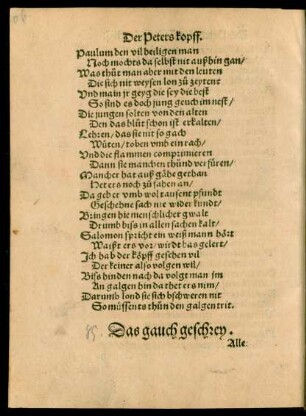 Der Peters kopff.
Paulum den vil heiligen man
Noch mochts da selbst nit außhin gan/
Was thůt man aber mit den leuten
Die sich nit weysen lon zů zeyten
Vnd main jr geyg die sey die best
So sind es doch jung geuch im nest/
Die jungen solten von den alten
Den das blůt schon ist erkalten/
Lehren/ das sie nit so gach
Wůten/ toben vmb ein rach/
Vnd die flammen comprimieren
Dann sie manchen thůnd verfüren/
Mancher hat auß gåhe gethan
Het ers noch zů fahen an/
Da geb er vmb wol tausent pfundt
Geschehne sach nie wider kundt/
Bringen hie menschlicher gwalt
Drumb biss in allen sachen kalt/
Salomon spricht ein weiß mann hört
Waißt ers vor/ wirdt bas gelert/
Ich hab der köpff gesehen vil
Der keiner also volgen wil/
Biss hinden nach da volgt man jm
An galgen hin da thet ers nim/
Darumb lond sie sich bschweren nit
So müssents thůn den galgentrit.
85
Das gauch geschrey.
Alle